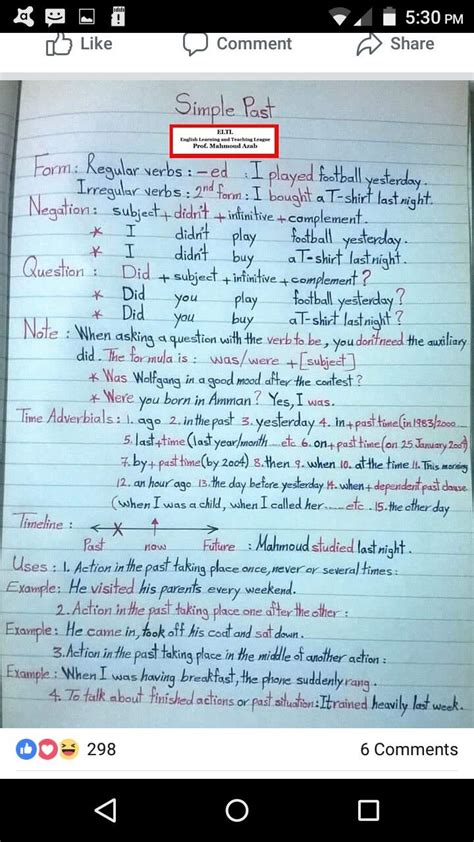 5:30 PM
Like Comment Share
Simple Past
ELTL
English Learning and Teaching League
Prof. Mahmoud Azab
Form : Regular verbs : -ed : I played football yesterday.
Irregular verbs : 2nd form : I bought a T-shirt last night.
Negation : subject + didn't + infinitive + complement.
* I didn't play football yesterday.
* I didn't buy a T-shirt last night.
Question : Did + subject + infinitive + complement ?
* Did you play football yesterday ?
* Did you buy a T-shirt last night ?
Note : When asking a question with the verb to be, you don't need the auxiliary
did. The formula is : was/were + [subject]
* Was Wolfgang in a good mood after the contest ?
* Were you born in Amman ? Yes, I was.
Time Adverbials : 1. ago 2. in the past 3. yesterday 4. in + past time (in 1983/2000......
5. last + time (last year/month ..... etc 6. on + past time (on 25 January 2009)
7. by + past time (by 2004) 8. then 9. when 10. at the time 11. This morning
12. an hour ago 13. the day before yesterday 14. when + dependent past clause
(when I was a child, when I called her...... etc . 15. the other day
Timeline :
Past now Future : Mahmoud studied last night.
Uses : 1. Action in the past taking place once, never or several times :
Example : He visited his parents every weekend.
2. Action in the past taking place one after the other :
Example : He came in, took off his coat and sat down.
3. Action in the past taking place in the middle of another action :
Example : When I was having breakfast, the phone suddenly rang.
4. To talk about finished actions or past situation : It rained heavily last week.
298 6 Comments